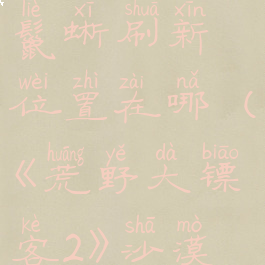 liè xī shuā xīn
鬣蜥刷新
wèi zhì zài nǎ
位置在哪（
huāng yě dà biāo
《荒野大镖
kè shā mò
客2》沙漠